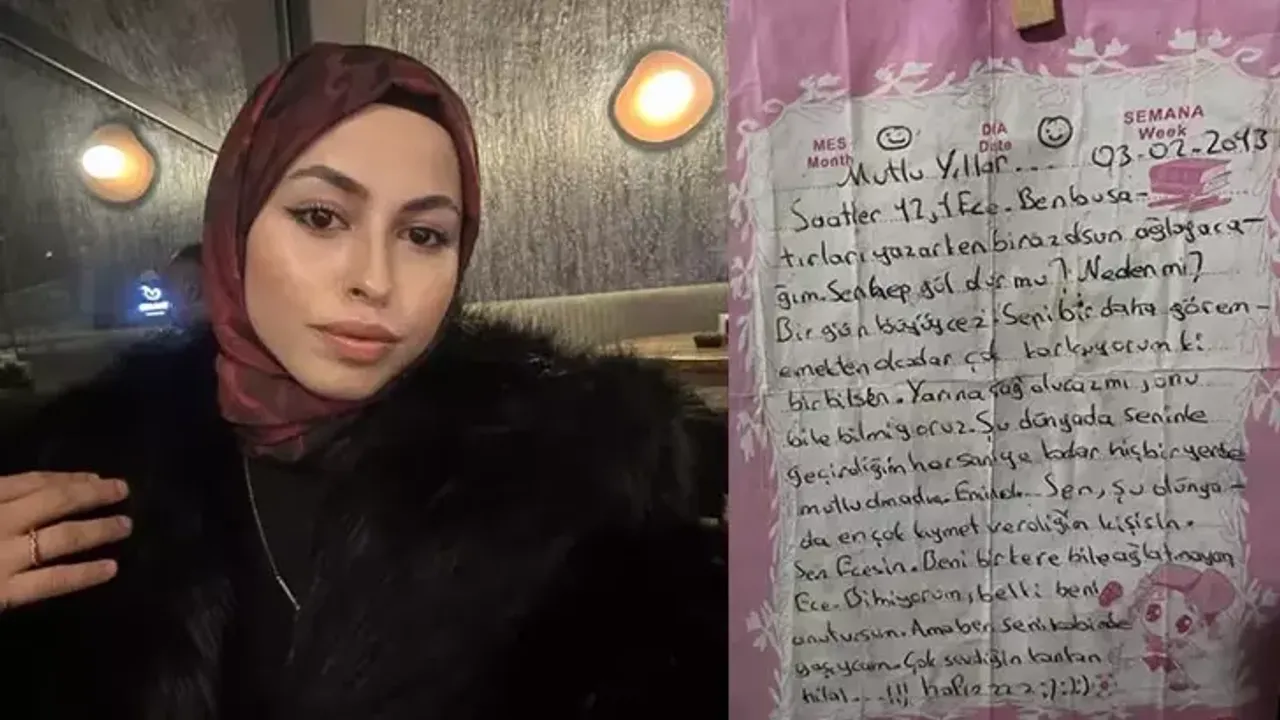 MES DIA SEMANA
Month Date Week
Mutlu Yıllar.... 03-02-2013
Saatler 12,1 Ece. Ben bu sa-
tırları yazarken biraz olsun ağlayaca-
ğım. Sen hep gül dur mu? Neden mi?
Bir gün büyüycez. Seni bir daha görem-
emekten okadar çok korkuyorum ki
bir bilsen. Yarına sağ olucazmı şonu
bile bilmiyoruz. Şu dünyada seninle
geçirdiğim her saniye kadar hiçbir yerde
mutlu olmadım. Sen, şu dünya-
da en çok kıymet verdiğim kişisin.
Sen Ecesin. Beni bir kere bile ağlatmayan
Ece. Bilmiyorum, belki beni
unutursun. Ama ben seni kabimde
yaşıycam. Çok sevdiğin kankan
hilal....!!! :):):)